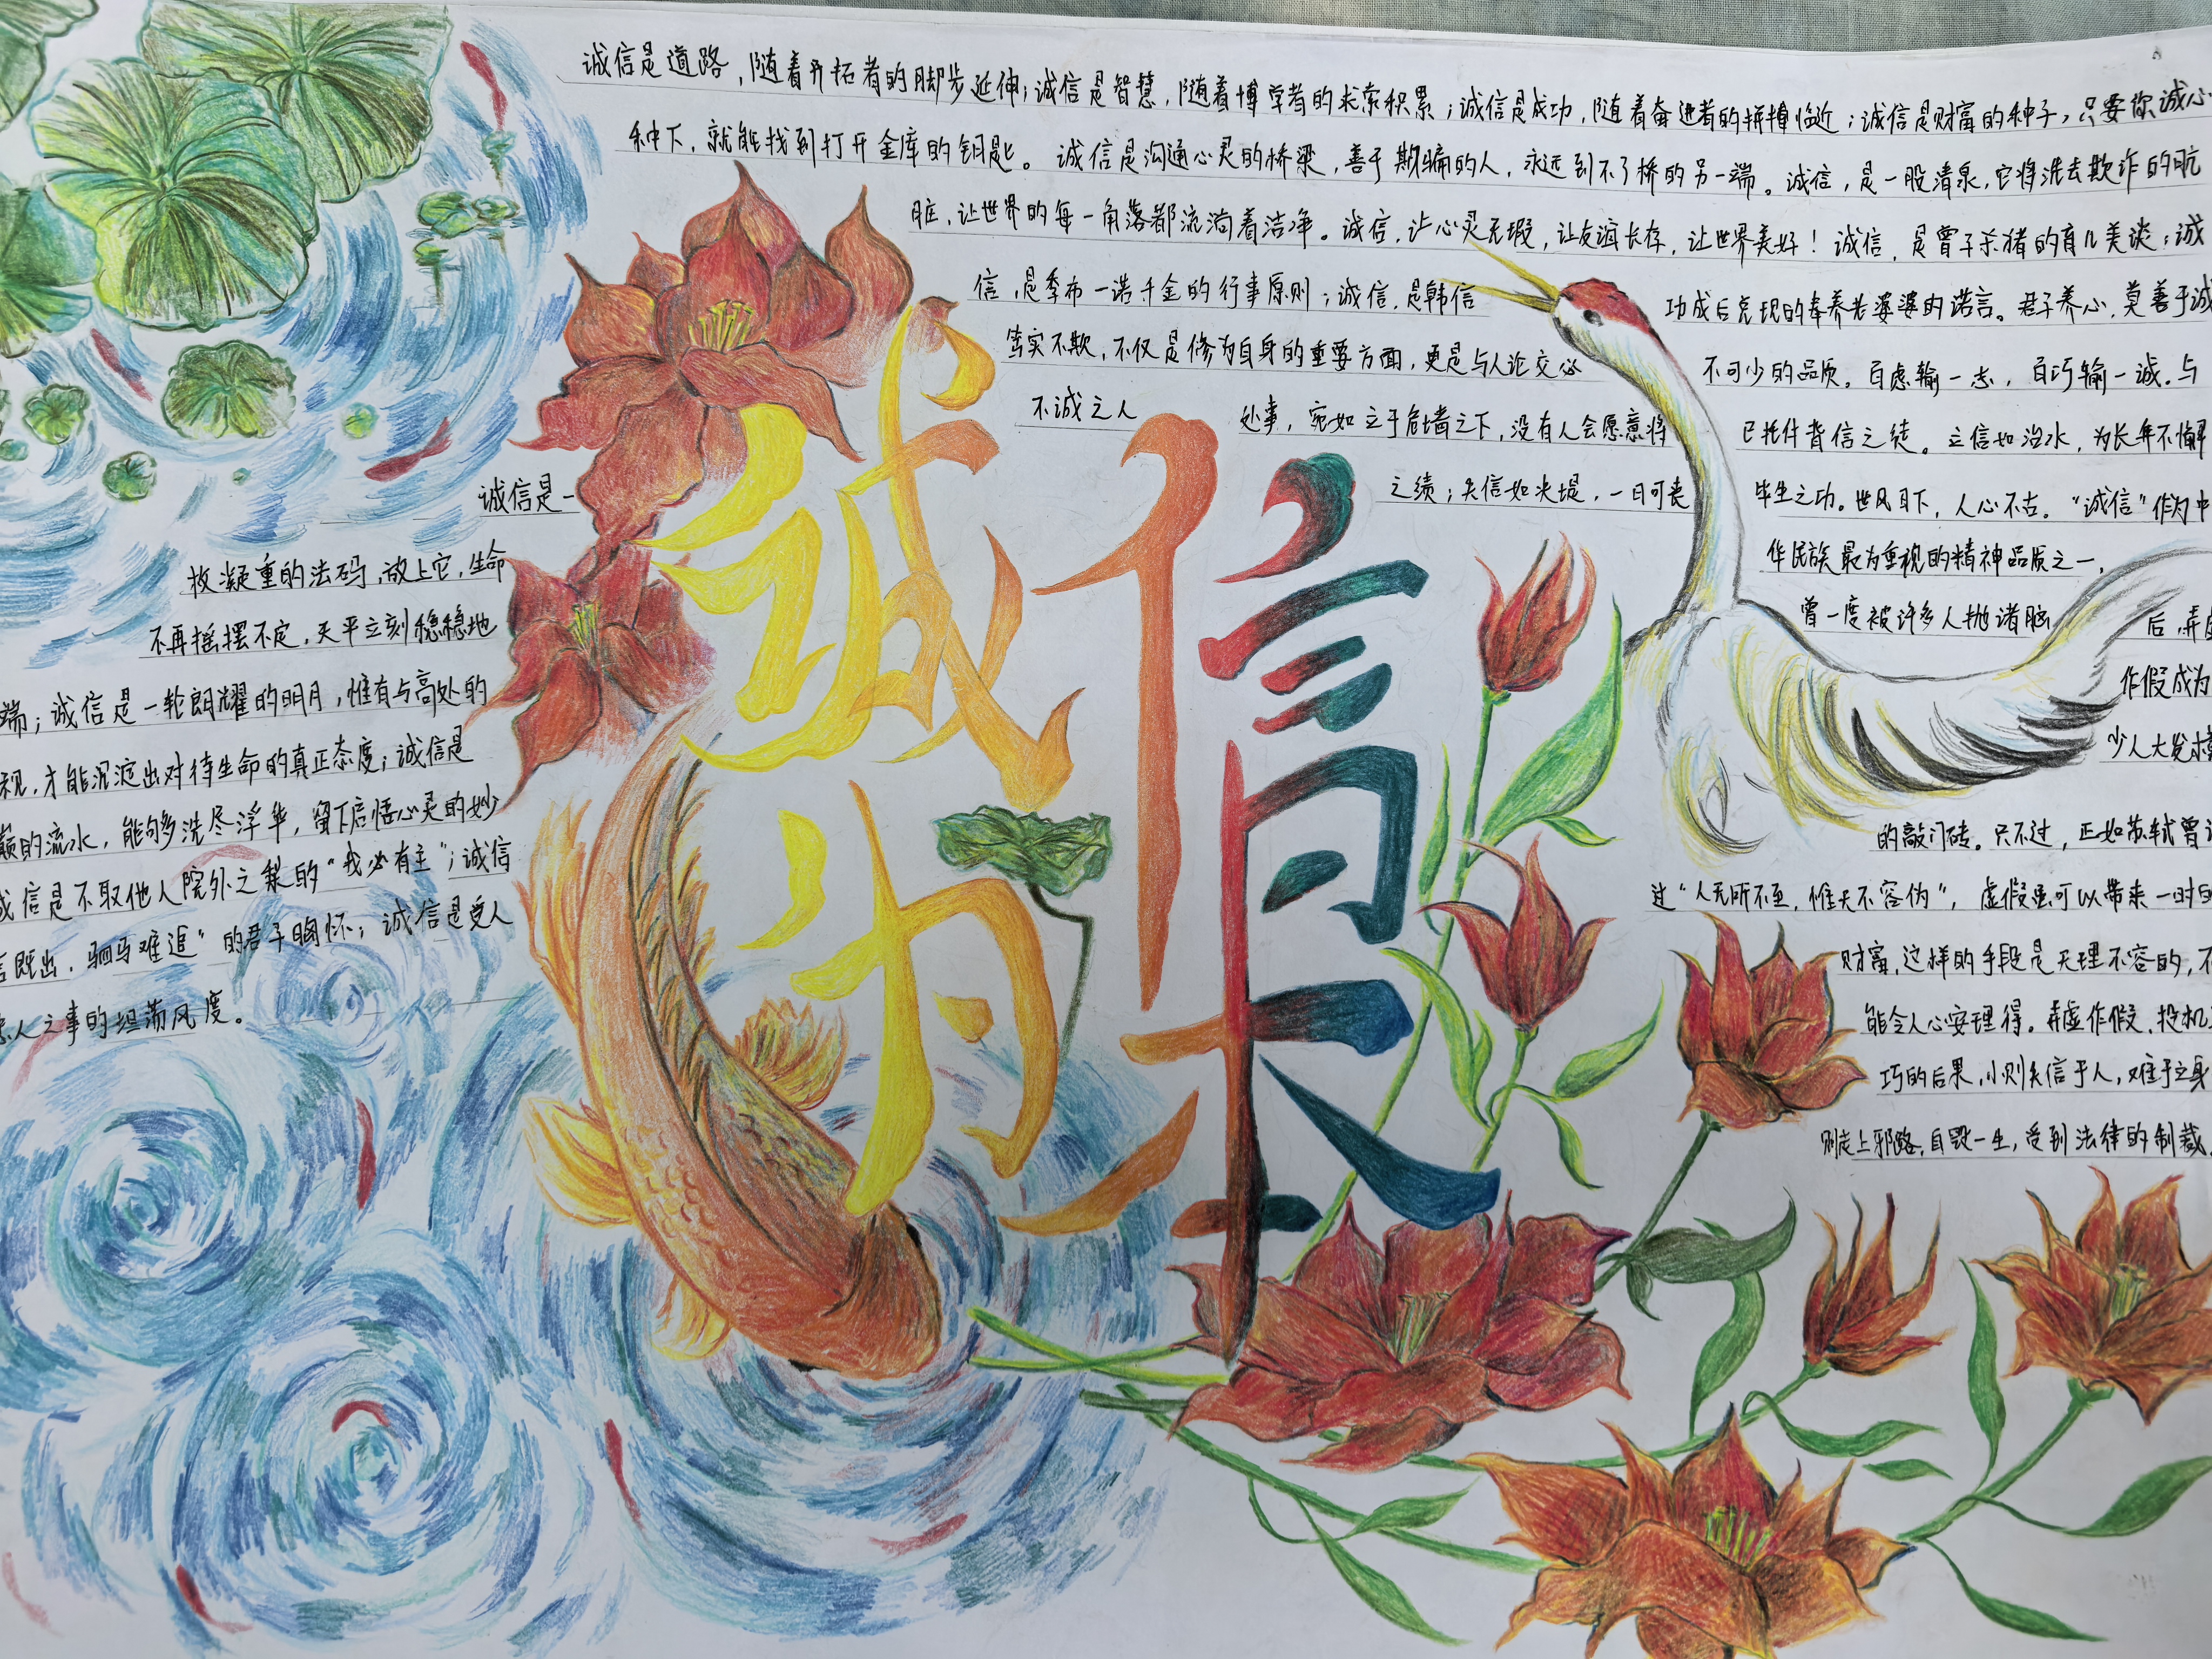 诚信是道路，随着开拓者的脚步延伸；诚信是智慧，随着博学者的求索积累；诚信是成功，随着奋进者的拼搏临近；诚信是财富的种子，只要你诚心
种下，就能找到打开金库的钥匙。诚信是沟通心灵的桥梁，善于欺骗的人，永远到不了桥的另一端。诚信，是一股清泉，它将洗去欺诈的肮
脏，让世界的每一角落都流淌着洁净。诚信，让心灵无瑕，让友谊长存，让世界美好！诚信，是曾子杀猪的育儿美谈；诚
信，是季布一诺千金的行事原则；诚信，是韩信 功成后兑现的奉养老婆婆的诺言。君子养心，莫善于诚
笃实不欺，不仅是修为自身的重要方面，更是与人论交必 不可少的品质。百虑输一志，百巧输一诚。与
不诚之人 处事，宛如立于危墙之下，没有人会愿意将 己托付背信之徒。立信如治水，为长年不懈
之绩；失信如决堤，一日可丧 毕生之功。世风日下，人心不古。“诚信”作为中
华民族最为重视的精神品质之一，
曾一度被许多人抛诸脑 后，弄
作假成为
少人大发
的敲门砖。只不过，正如苏轼曾
过“人无所不至，惟天不容伪”，虚假虽可以带来一时的
财富，这样的手段是天理不容的，不
能令人心安理得。弄虚作假，投机
巧的后果，小则失信于人，难于立身
则走上邪路，自毁一生，受到法律的制裁
诚信为本
诚信是一
枚凝重的法码，放上它，生命
不再摇摆不定，天平立刻稳稳地
端；诚信是一轮朗耀的明月，惟有与高处的
视，才能沉淀出对待生命的真正态度；诚信是
巅的流水，能够洗尽浮华，留下启悟心灵的妙
诚信是不取他人院外之梨的“我必有主”；诚信
言既出，驷马难追”的君子胸怀；诚信是受人
人之事的坦荡风度。